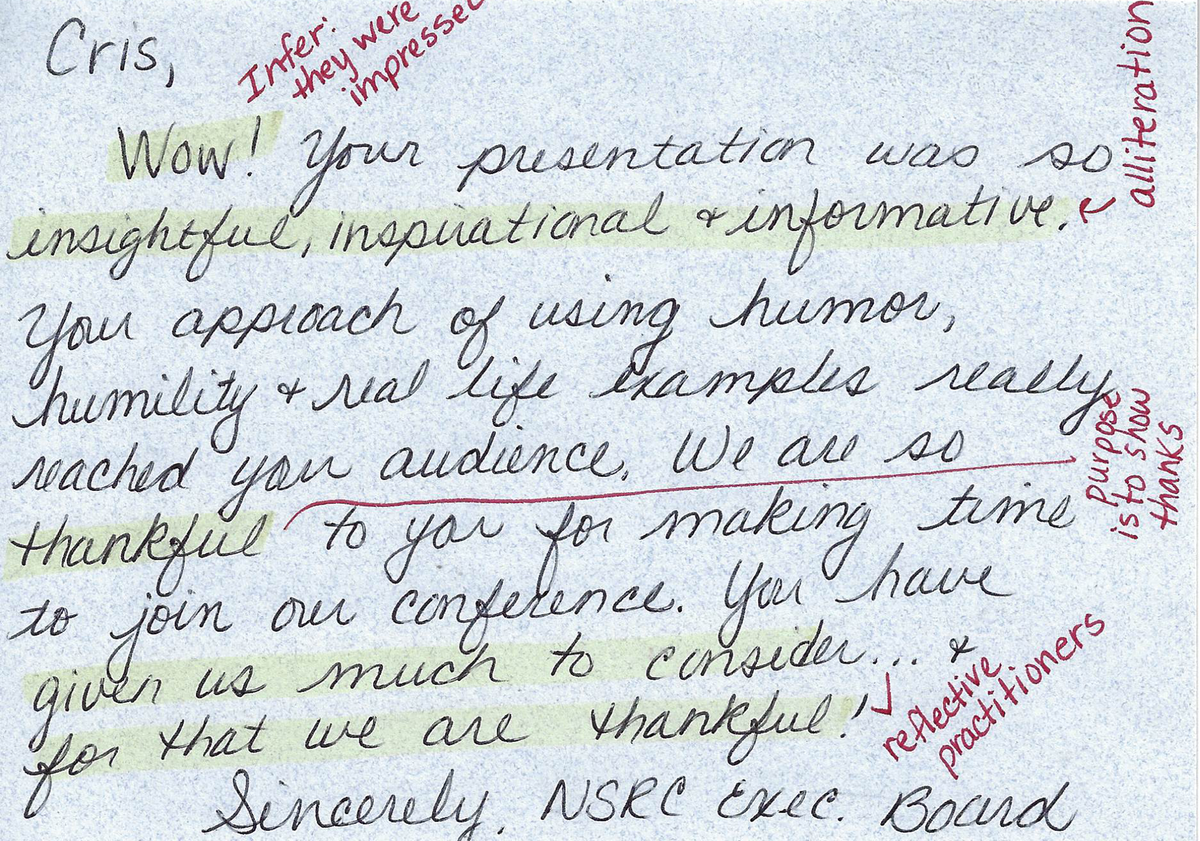 Cris,
Infer:
they were
impressed
Wow! Your presentation was so
alliteration
insightful, inspirational & informative.
Your approach of using humor,
humility & real life examples really
reached your audience. We are so
purpose
is to show
thanks
thankful to you for making time
to join our conference. You have
given us much to consider... &
for that we are thankful!
reflective
practitioners
Sincerely, NSRC Exec. Board